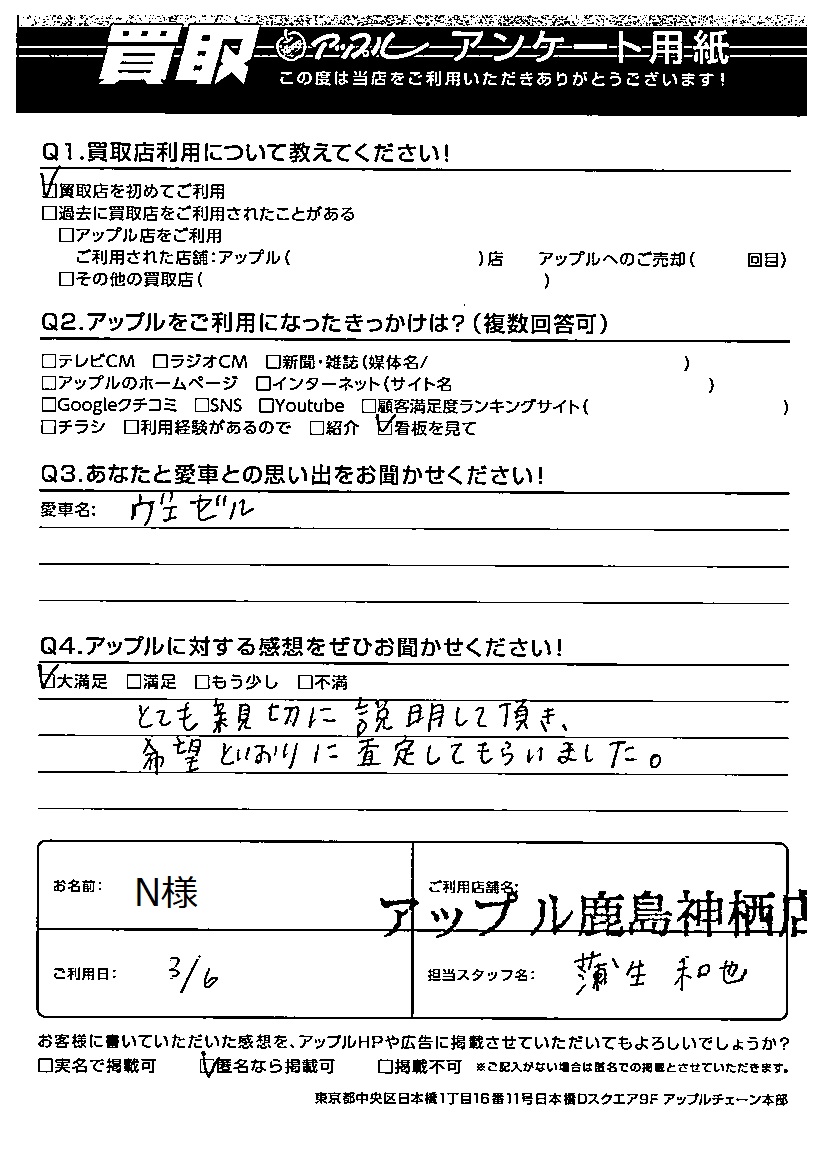 買取 アップル アンケート用紙
この度は当店をご利用いただきありがとうございます!
Q1.買取店利用について教えてください!
☑買取店を初めてご利用
□過去に買取店をご利用されたことがある
□アップル店をご利用
ご利用された店舗:アップル( )店 アップルへのご売却( 回目)
□その他の買取店( )
Q2.アップルをご利用になったきっかけは?(複数回答可)
□テレビCM □ラジオCM □新聞・雑誌(媒体名/ )
□アップルのホームページ □インターネット(サイト名 )
□Googleクチコミ □SNS □Youtube □顧客満足度ランキングサイト( )
□チラシ □利用経験があるので □紹介 ☑看板を見て
Q3.あなたと愛車との思い出をお聞かせください!
愛車名: ヴェゼル
Q4.アップルに対する感想をぜひお聞かせください!
☑大満足 □満足 □もう少し □不満
とても親切に説明して頂き、
希望どおりに査定してもらいました。
お名前: N様
ご利用店舗名:
アップル鹿島神栖店
ご利用日: 3/6
担当スタッフ名: 蒲生 和也
お客様に書いていただいた感想を、アップルHPや広告に掲載させていただいてもよろしいでしょうか?
□実名で掲載可 ☑匿名なら掲載可 □掲載不可 ※ご記入がない場合は匿名での掲載とさせていただきます。
東京都中央区日本橋1丁目16番11号日本橋Dスクエア9F アップルチェーン本部